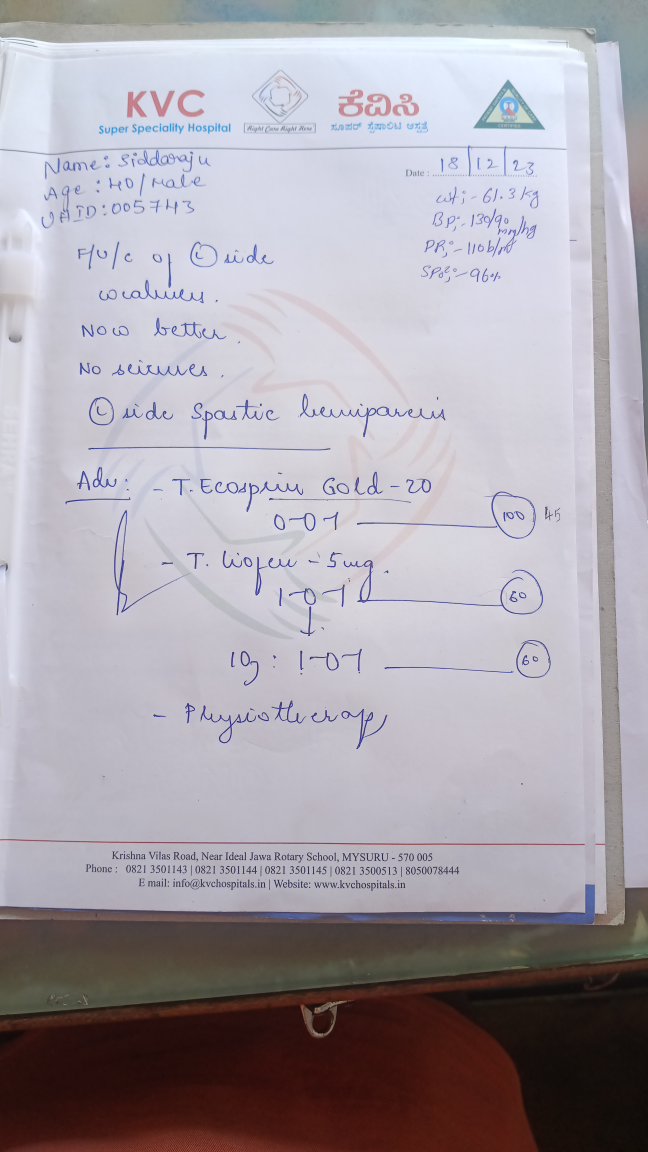 KVC
Super Speciality Hospital
Right Care Right Here
ಕೆವಿಸಿ
ಸೂಪರ್ ಸ್ಪೆಷಾಲಿಟಿ ಆಸ್ಪತ್ರೆ
Name: Siddaraju
Age: 40/Male
UHID: 005743
Date: 18/12/23
wt:- 61.3 kg
BP:- 130/90 mm/hg
PR:- 110 b/m
SPO2:- 96%
F/U/c of Ⓛ side
weakness.
Now better.
No seizures.
Ⓛ side Spastic hemiparesis
Adv: - T. Ecosprin Gold - 20
0-0-1 100 45
- T. Liofen - 5mg.
1-0-1 60
↓
10: 1-0-1 60
- Physiotherapy
Krishna Vilas Road, Near Ideal Jawa Rotary School, MYSURU - 570 005
Phone : 0821 3501143 | 0821 3501144 | 0821 3501145 | 0821 3500513 | 8050078444
E mail: info@kvchospitals.in | Website: www.kvchospitals.in